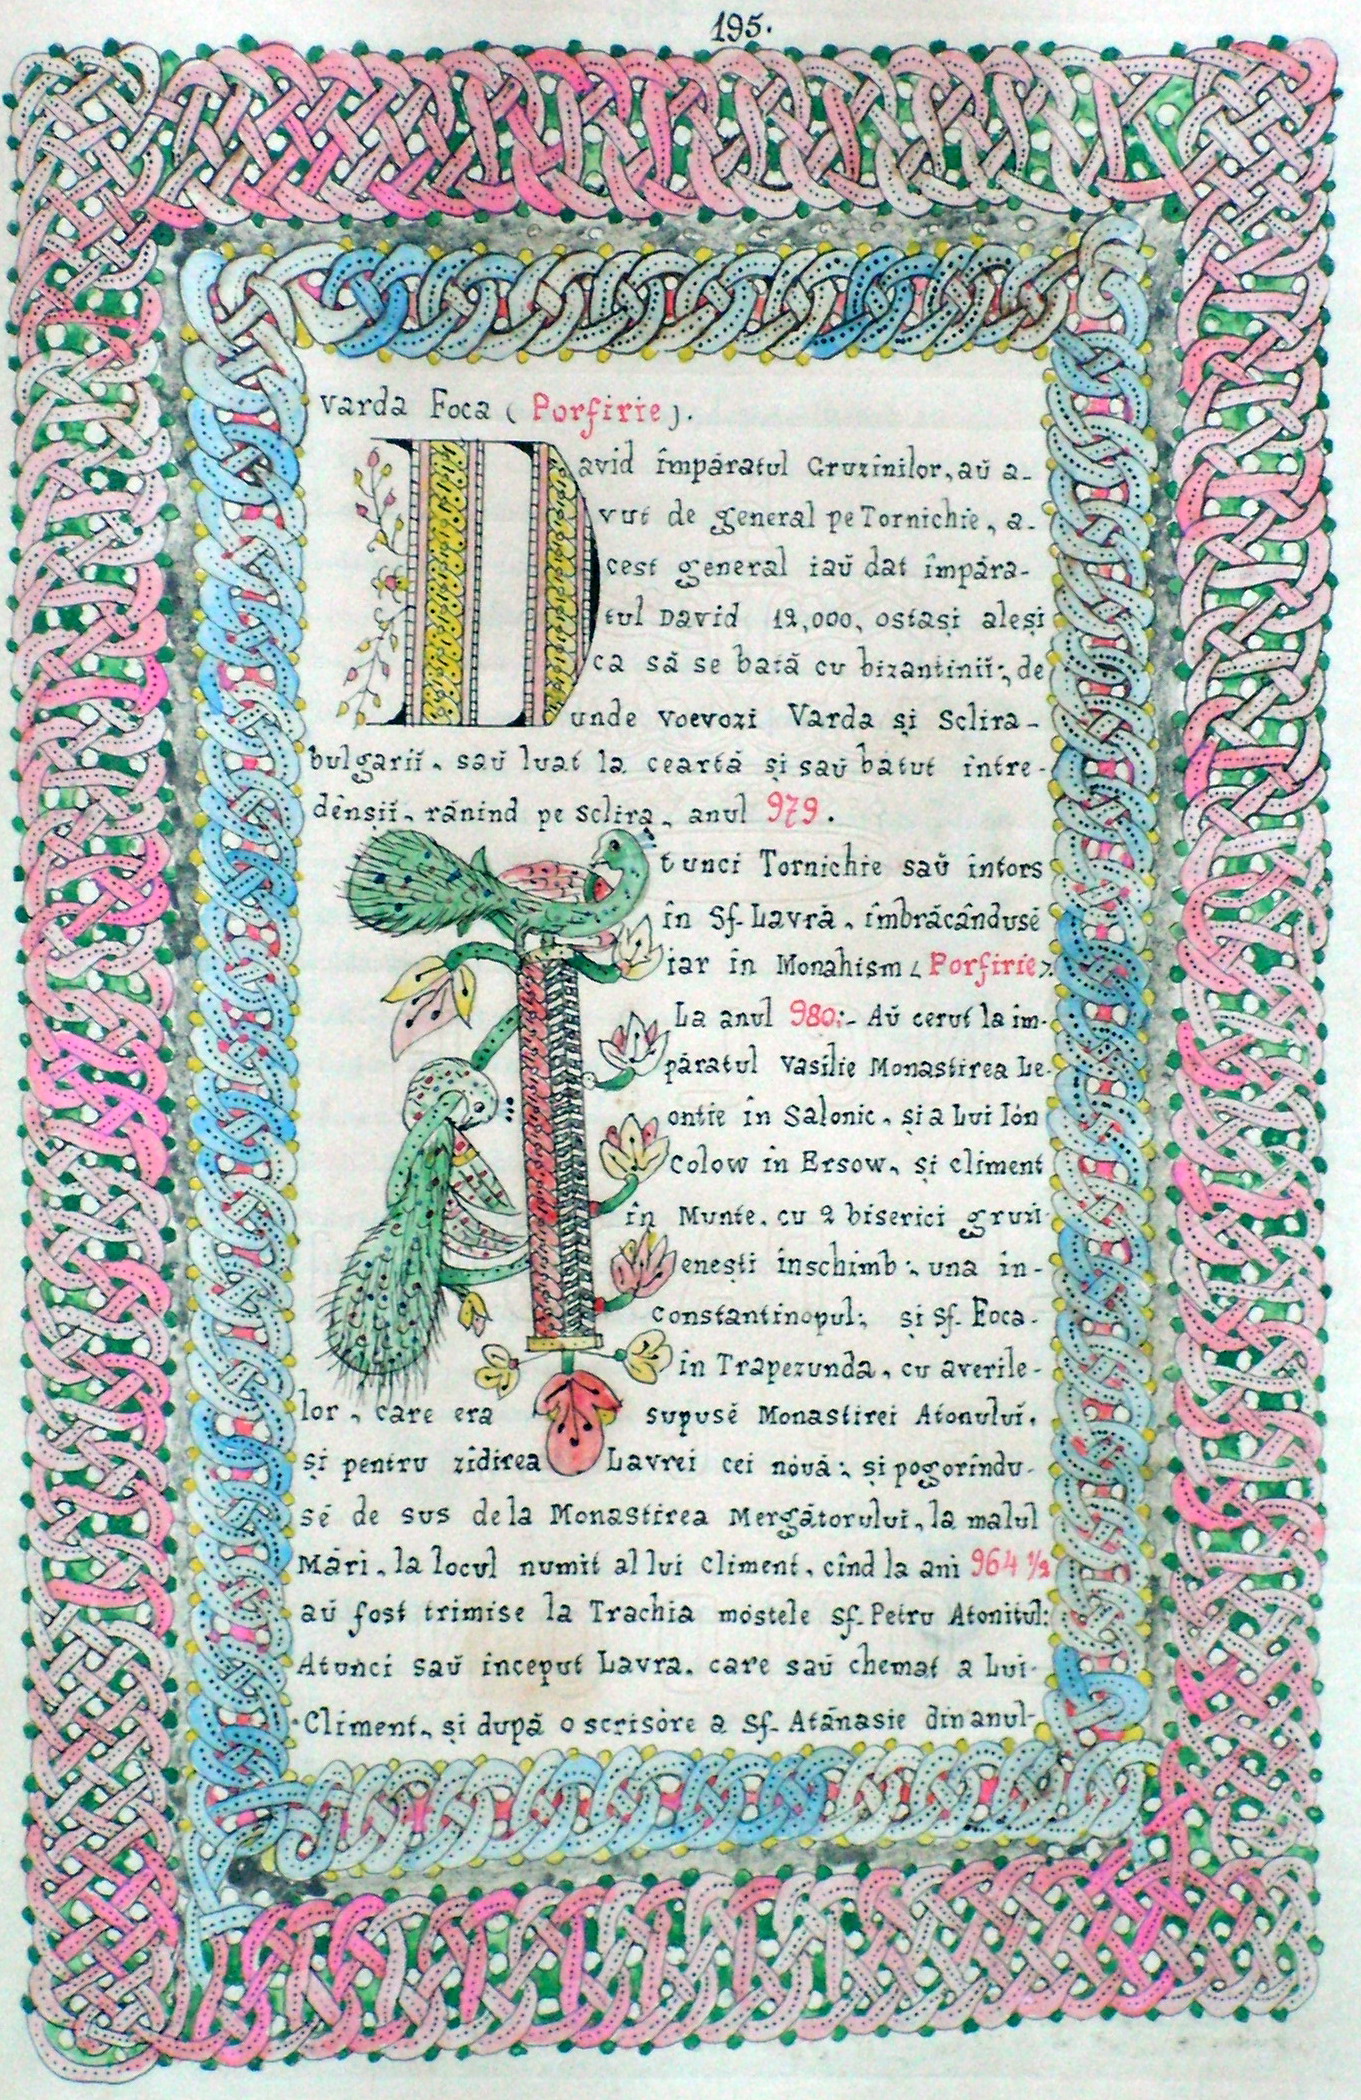 195.
Varda Foca (Porfirie).
David împăratul Gruzînilor, aŭ a-
vut de general pe Tornichie, a-
cest general iaŭ dat împăra-
tul David 12,000, ostași aleși
ca să se bată cu bizantiniĭ:, de
unde voevozi Varda și Sclira-
bulgariĭ. saŭ luat la ceartă și saŭ bătut între-
dênșiĭ, rănind pe Sclira, anul 979.
Atunci Tornichie saŭ intors
în Sf. Lavră, îmbrăcândusĕ
iar în Monahism (Porfirie).
La anul 980:- Aŭ cerut la îm-
păratul Vasilie Monastirea Le-
ontie în Salonic, și a Lui Ión
Colow în Ersow, și climent
în Munte. cu 2 biserici gruzi-
enești inschimb:, una în-
Constantinopul:, și Sf. Foca-
în Trapezunda, cu averile-
lor, care era supusĕ Monastirei Atonuluĭ,
și pentru zîdirea Lavrei cei nóuă:, și pogorîndu-
sĕ de sus dela Monastirea Mergătoruluĭ, la malul
Mări, la locul numit al lui climent, cînd la ani 964 1/2
aŭ fost trimise la Trachia móstele Sf. Petru Atonitul:
Atunci saŭ inceput Lavra. care saŭ chemat a Lui-
Climent, și după o scrisóre a Sf. Atănasie din anul-